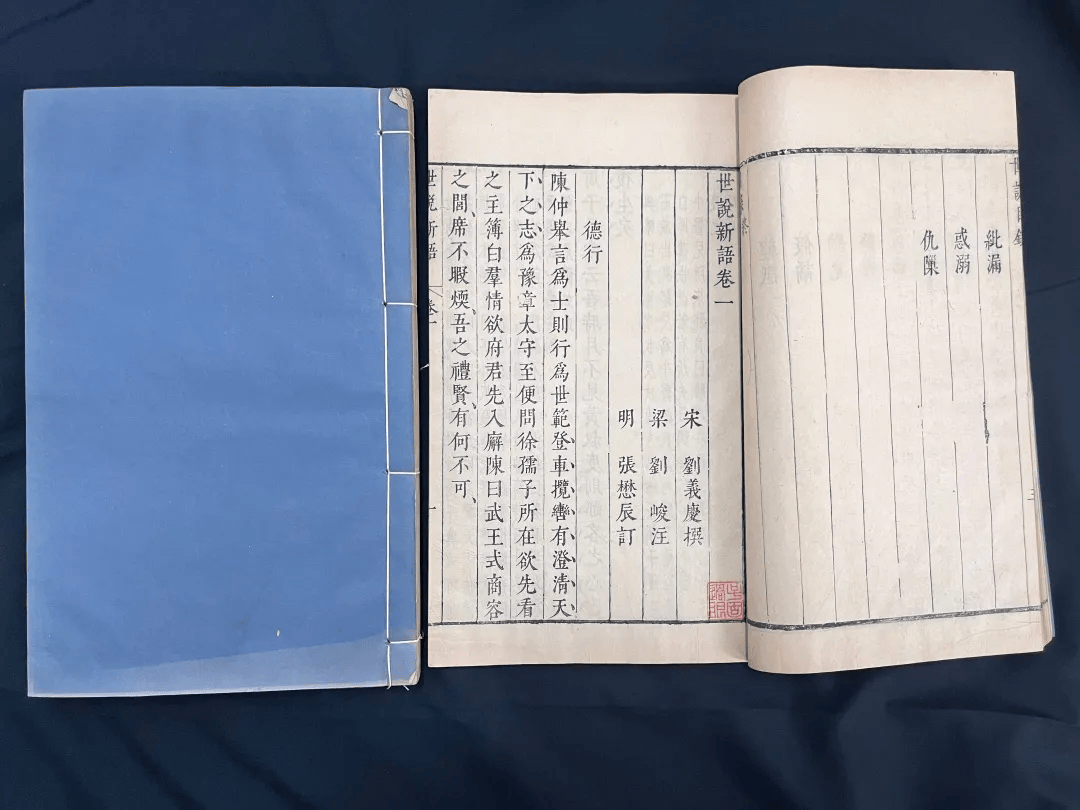 世說目錄
紕漏
惑溺
仇隟
三
世說新語卷一
宋 劉義慶撰
梁 劉 峻注
明 張懋辰訂
德行
陳仲舉言爲士則行爲世範登車攬轡有澄清天
下之志爲豫章太守至便問徐孺子所在欲先看
之主簿白羣情欲府君先入廨陳曰武王式商容
之閭席不暇煗吾之禮賢有何不可
世說新語 卷一 一